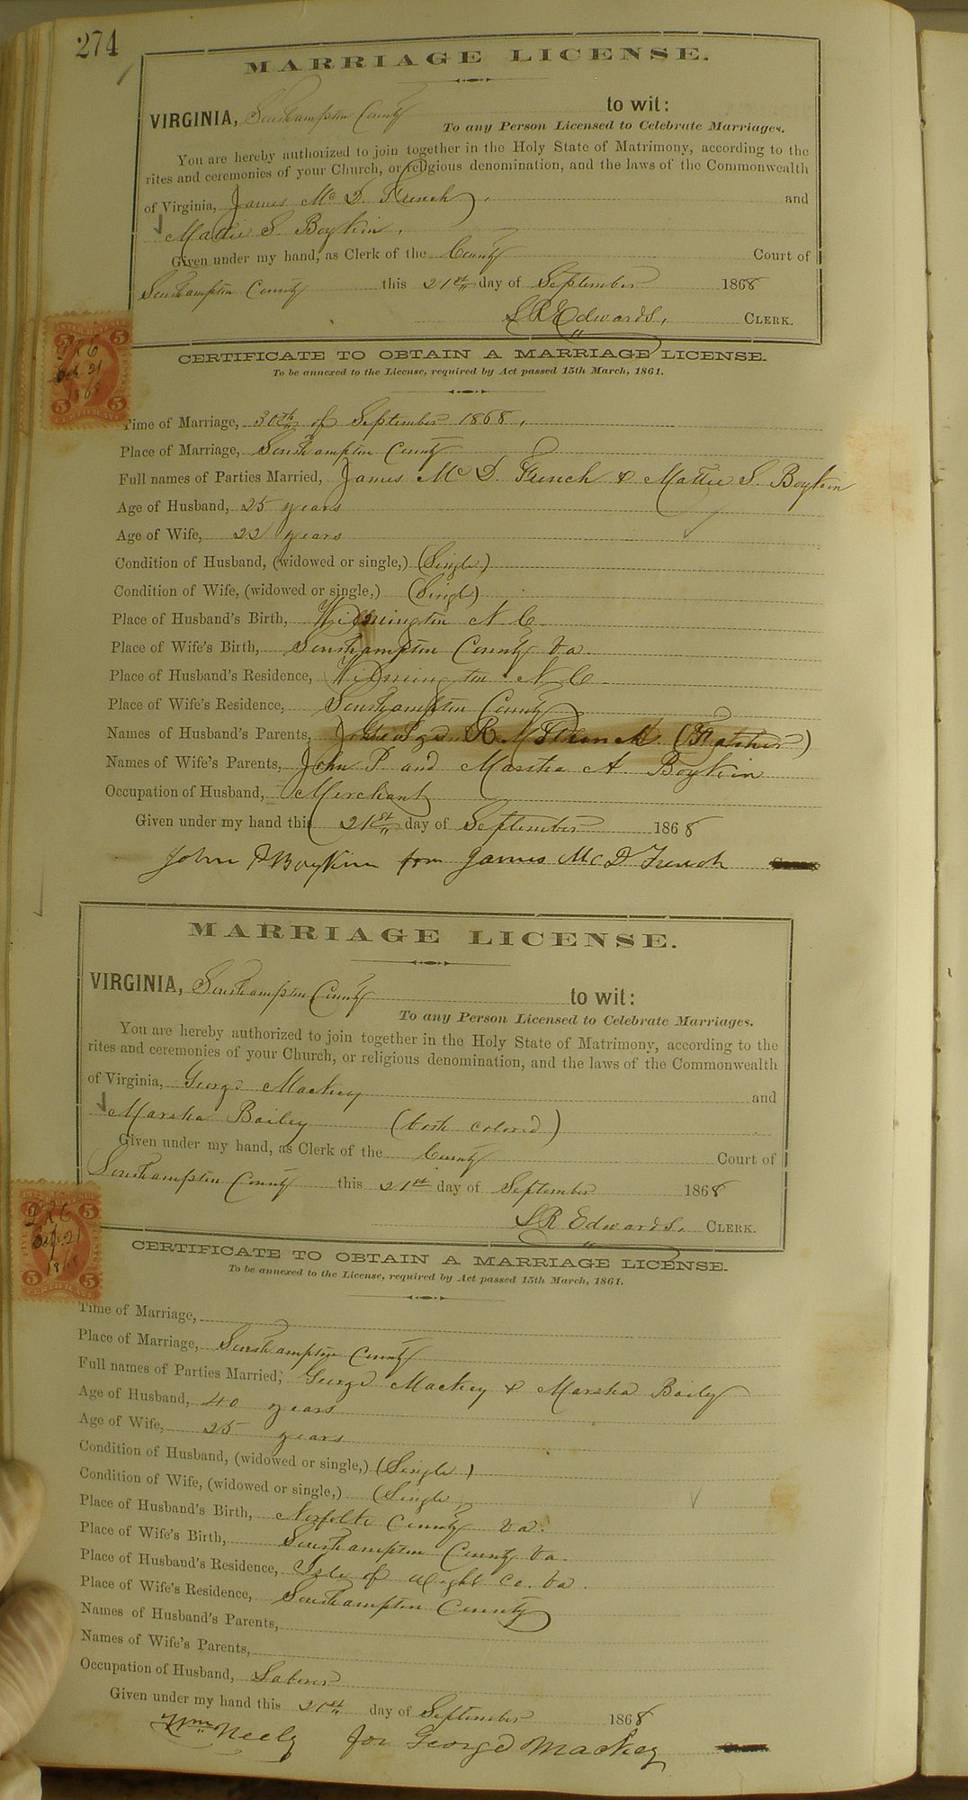 274
MARRIAGE LICENSE.
VIRGINIA, Southampton County to wit:
To any Person Licensed to Celebrate Marriages.
You are hereby authorized to join together in the Holy State of Matrimony, according to the
rites and ceremonies of your Church, or religious denomination, and the laws of the Commonwealth
of Virginia, James McD. French, and
Mattie S. Boykin,
Given under my hand, as Clerk of the County Court of
Southampton County this 21st day of September 1868
L R Edwards, CLERK.
CERTIFICATE TO OBTAIN A MARRIAGE LICENSE.
To be annexed to the License, required by Act passed 15th March, 1861.
Time of Marriage, 30th of September 1868,
Place of Marriage, Southampton County
Full names of Parties Married, James McD. French & Mattie S. Boykin
Age of Husband, 25 years
Age of Wife, 22 years
Condition of Husband, (widowed or single,) (Single)
Condition of Wife, (widowed or single,) (Single)
Place of Husband's Birth, Wilmington N C
Place of Wife's Birth, Southampton County Va.
Place of Husband's Residence, Wilmington N C
Place of Wife's Residence, Southampton County
Names of Husband's Parents, George R. French (Father)
Names of Wife's Parents, John P. and Martha A. Boykin
Occupation of Husband, Merchant
Given under my hand this 21st day of September 1868
John P Boykin for James McD French
MARRIAGE LICENSE.
VIRGINIA, Southampton County to wit:
To any Person Licensed to Celebrate Marriages.
You are hereby authorized to join together in the Holy State of Matrimony, according to the
rites and ceremonies of your Church, or religious denomination, and the laws of the Commonwealth
of Virginia, George Mackey and
Martha Bailey (both colored)
Given under my hand, as Clerk of the County Court of
Southampton County this 21st day of September 1868
L R Edwards, CLERK.
CERTIFICATE TO OBTAIN A MARRIAGE LICENSE.
To be annexed to the License, required by Act passed 15th March, 1861.
Time of Marriage,
Place of Marriage, Southampton County
Full names of Parties Married, George Mackey & Martha Bailey
Age of Husband, 40 years
Age of Wife, 25 years
Condition of Husband, (widowed or single,) (Single)
Condition of Wife, (widowed or single,) (Single
Place of Husband's Birth, Norfolk County Va.
Place of Wife's Birth, Southampton County Va.
Place of Husband's Residence, Isle of Wight Co. Va.
Place of Wife's Residence, Southampton County
Names of Husband's Parents,
Names of Wife's Parents,
Occupation of Husband, Laborer
Given under my hand this 21st day of September 1868
Wm Neely for George Mackey